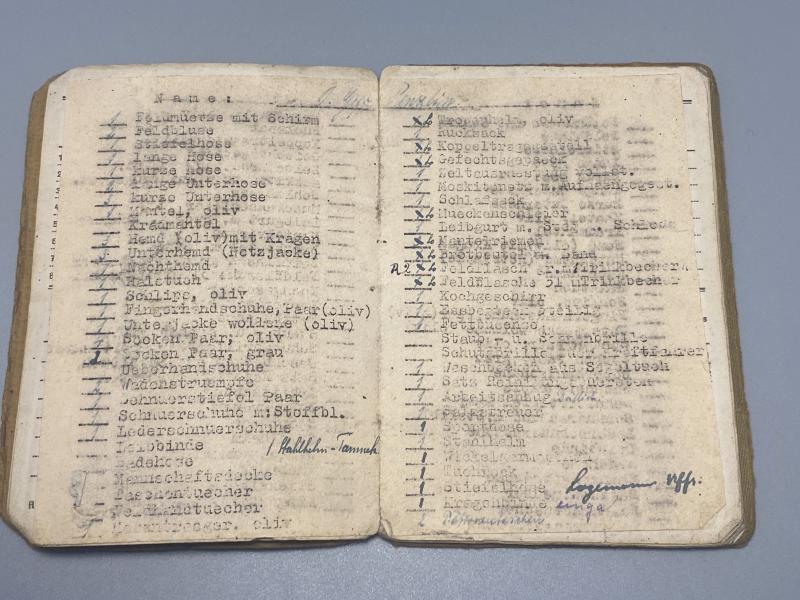 Name:
Feldmuetze mit Schirm
Feldbluse
Stiefelhose
lange Hose
kurze Hose
lange Unterhose
kurze Unterhose
Mantel, oliv
Kradmantel
Hemd (oliv)mit Kragen
Unterhemd (Netzjacke)
Nachthemd
Halstuch
Schlips, oliv
Fingerhandschuhe,Paar(oliv)
Unterjacke wollene (oliv)
Socken Paar, oliv
Socken Paar, grau
Ueberhandschuhe
Wadenstruempfe
Schnuerstiefel Paar
Schnuerschuhe m.Stoffbl.
Lederschnuerschuhe
Leibbinde
1 Stahlhelm-Tarnnetz
Badehose
Mannschaftsdecke
Taschentuecher
Feldhandtuecher
Hosentraeger, oliv
Tropenhelm, oliv
Rucksack
Koppeltragegestell
Gefechtsgepaeck
Zeltausruestung vollst.
Moskitonetz m.Aufhaengegest.
Schlafsack
Mueckenschleier
Leibgurt m. Schloss
Mantelriemen
Brotbeutel m. Band
R2 Feldflasch gr.m/Trinkbechern
Feldflasche öl m Trinkbecher
Kochgeschirr
Essbesteck 3teilig
Fettbuechse
Staub- u. Sonnenbrille
Schutzbrille fuer Kraftfahrer
Waschbeutel aus Segeltuch
Satz Reinigungsbuersten
Arbeitsanzug
1 Sporthose
1 Stahlhelm
1 Wickelgamaschen
1 Tuchrock
1 Stiefelhose
1 Kragenbinde